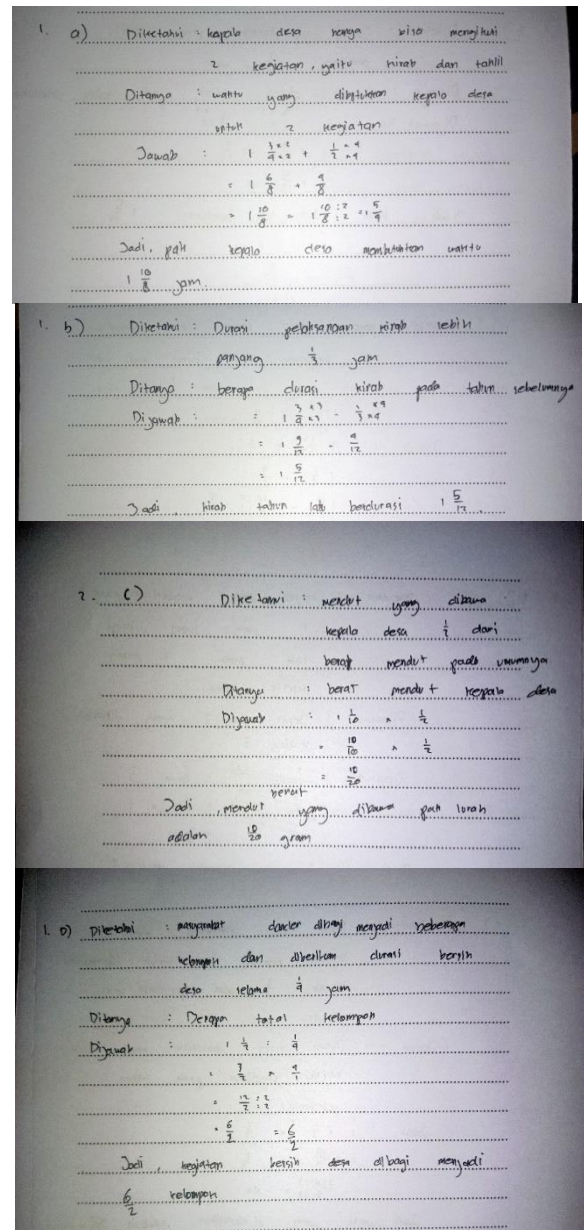 1. a) Diketahui : kepala desa hanya bisa mengikuti
2 kegiatan, yaitu kirab dan tahlil
Ditanya : waktu yang dibutuhkan kepala desa
untuk 2 kegiatan
Jawab : 1 3×2/4×2 + 1/2 ×4/×4
= 1 6/8 + 4/8
= 1 10/8 = 1 10:2/8:2 = 1 5/4
Jadi, pak kepala desa membutuhkan waktu
1 10/8 jam.
1. b) Diketahui : Durasi pelaksanaan kirab lebih
panjang 1/3 jam
Ditanya : berapa durasi kirab pada tahun sebelumnya
Dijawab : = 1 3×3/4×3 - 1×4/3×4
= 1 9/12 - 4/12
= 1 5/12
Jadi, kirab tahun lalu berdurasi 1 5/12.
2. c) Diketahui : mendut yang dibawa
kepala desa 1/2 dari
berat mendut pada umumnya
Ditanya : berat mendut kepala desa
Dijawab : 1 1/10 × 1/2
= 10/10 × 1/2
= 10/20
Jadi, mendut berat yang dibawa pak lurah
adalah 10/20 gram
1. D) Diketahui : masyarakat dibagi menjadi beberapa
kelompok dan diberikan durasi bersih
desa selama 1/4 jam
Ditanya : Berapa total kelompok
Dijawab : 1 1/2 : 1/4
= 3/2 × 4/1
= 12:2/2:2
= 6/2 = 6/2
Jadi, kegiatan bersih desa dibagi menjadi
6/2 kelompok